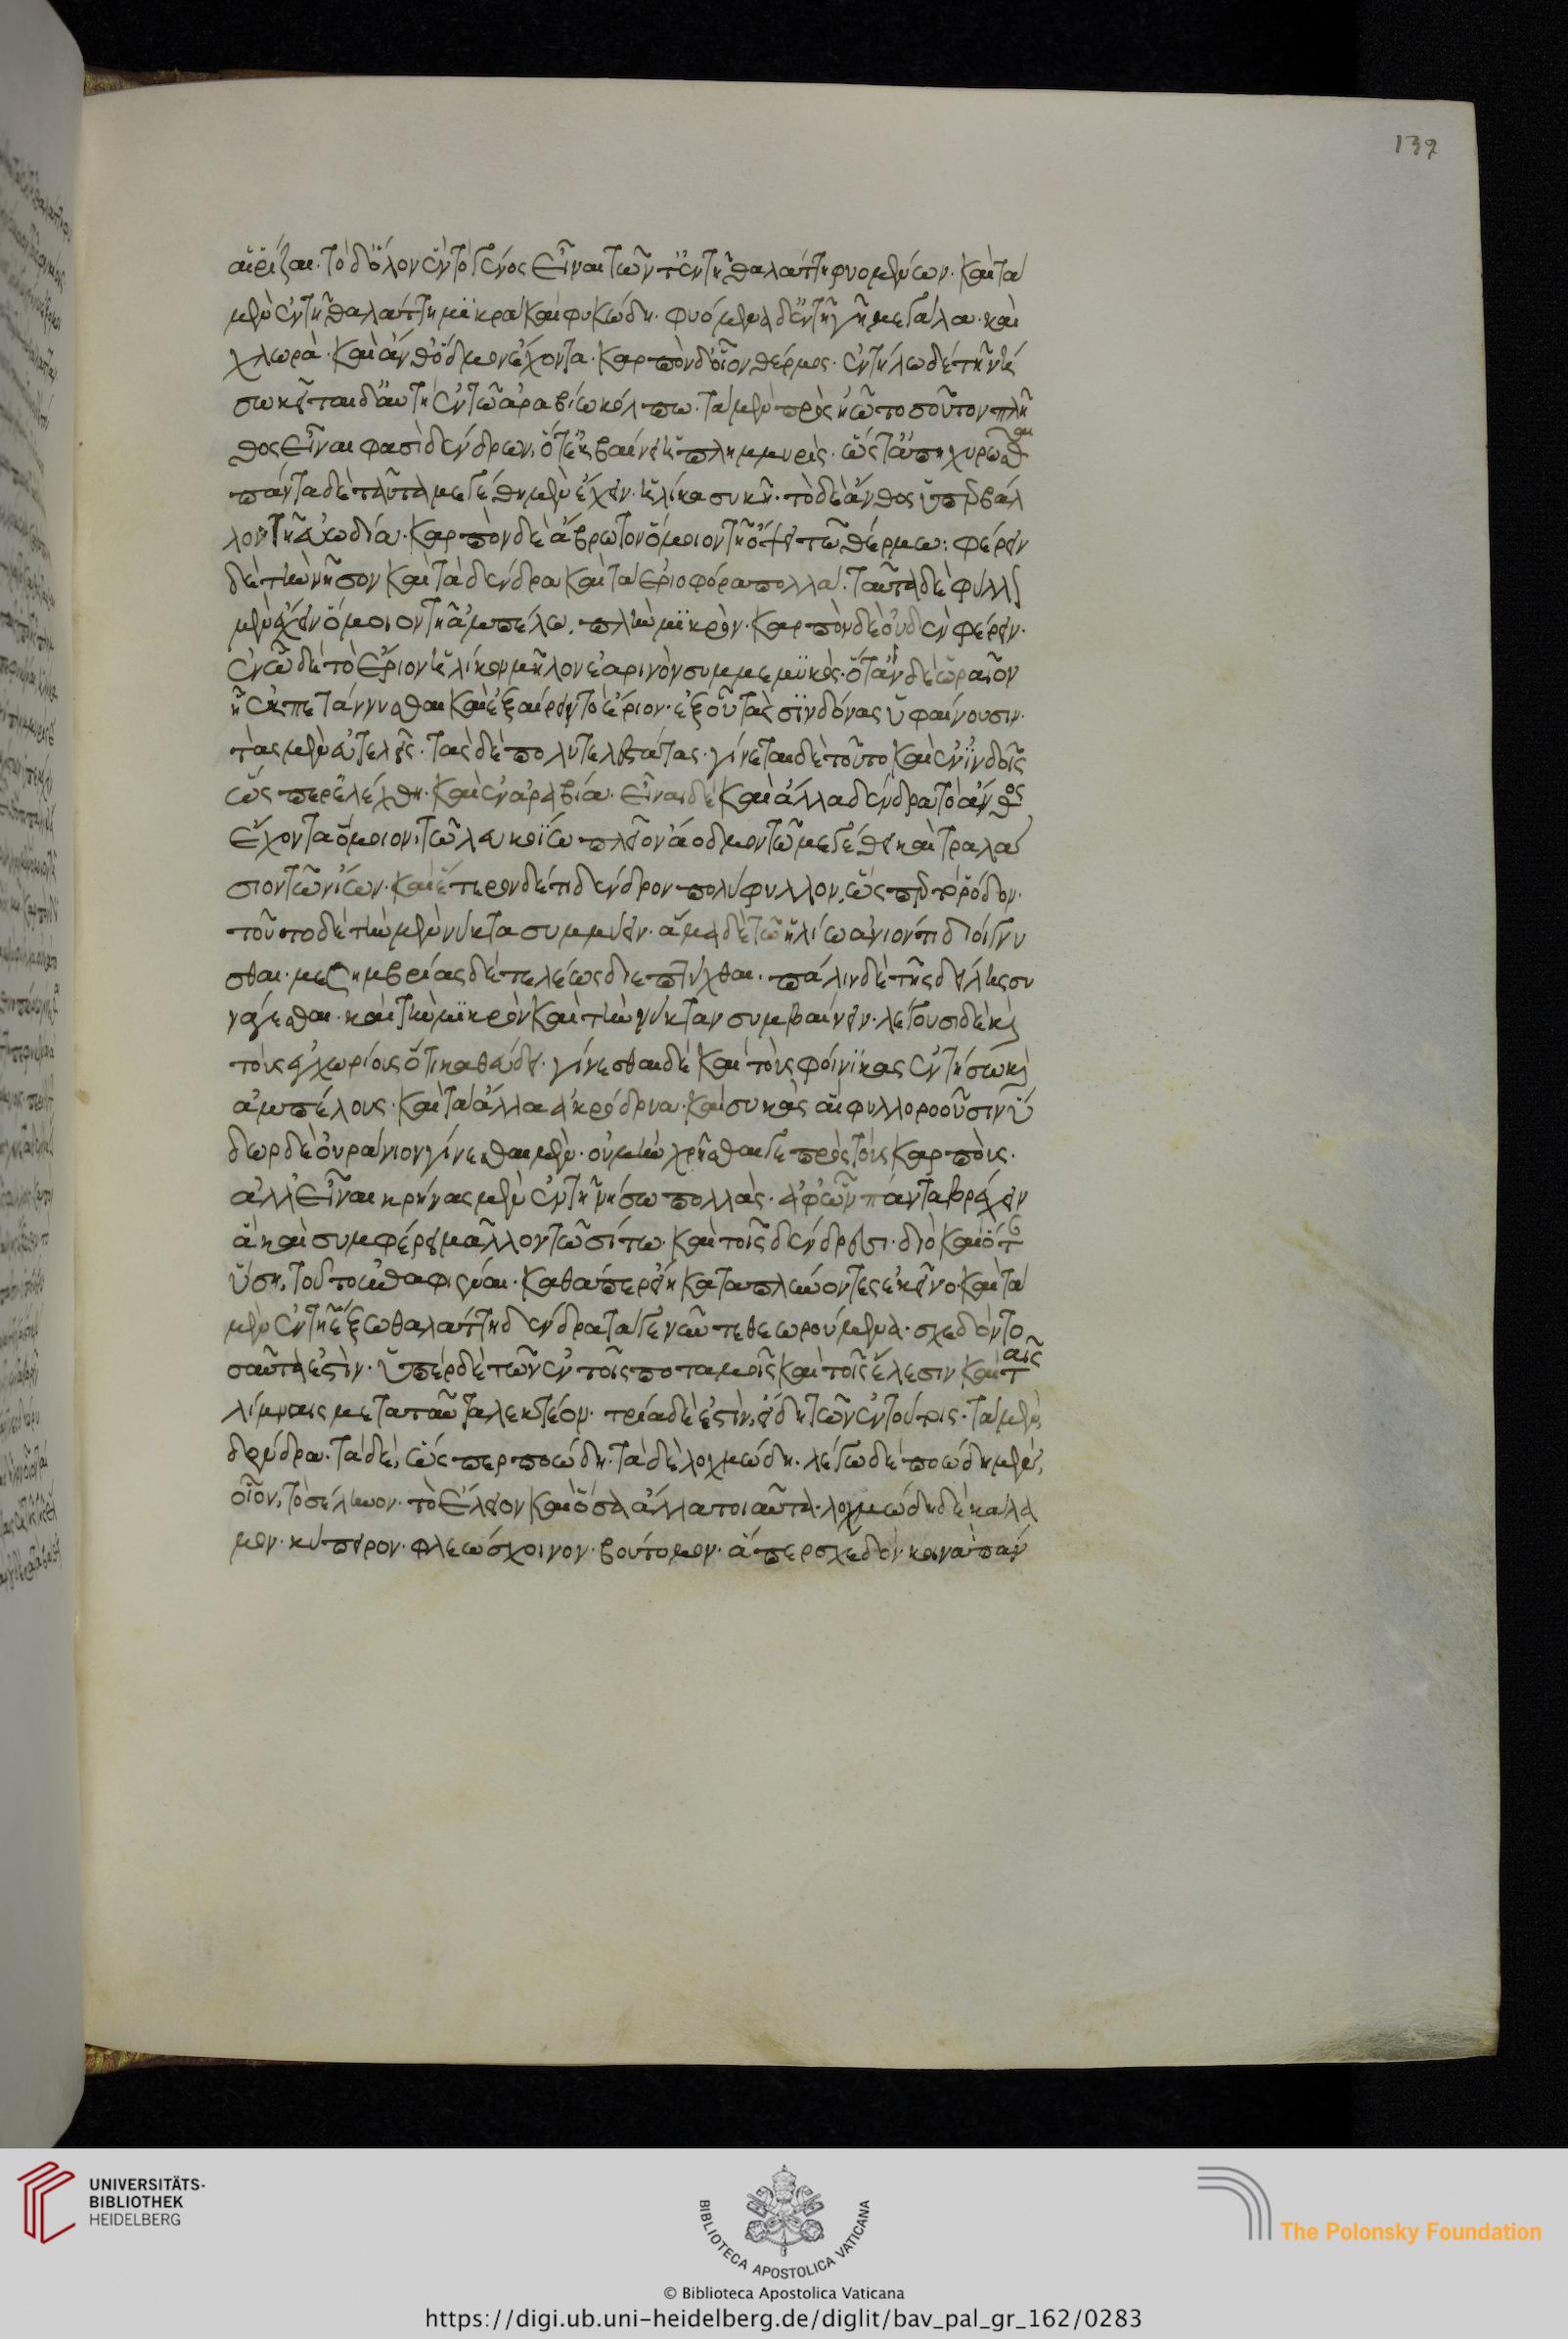 139
αἱ ῥίζαι. τὸ δ' ὅλον ἓν τὸ γένος εἶναι τῶν τ' ἐν τῆ θαλάττη φυομένων. καὶ τὰ
μὲν ἐν τῆ θαλάττη μικρὰ καὶ φυκώδη. φυόμενα δ' ἐν τῆ γῆ μεγάλα. καὶ
χλωρὰ. καὶ ἄνθος ὄδμον ἔχοντα. καρπὸν δ' οἷον θέρμος. ἐν τύλω δὲ τῆ νή
σω κεῖται δ' αὕτη ἐν τῶ ἀραβίω κόλπω. τὰ μὲν πρὸς ἠῶ τοσοῦτον πλῆ
θος εἶναι φασὶ δένδρων, ὅτ' ἐκβαίνει ἡ πλημμυρὶς. ὥστ' ἀπηχυρῶσθαι
πάντα δὲ ταῦτα μεγέθη μὲν ἔχειν. ἡλίκα συκῆ. τὸ δὲ ἄνθος ὑπερβάλ
λον τῆ εὐωδία. καρπὸν δὲ ἄβρωτον ὅμοιον τῆ ὄψει τῶ θέρμω: φέρειν
δὲ τὴν νῆσον καὶ τὰ δένδρα καὶ τὰ ἐριοφόρα πολλά. ταῦτα δὲ φύλλον
μὲν ἔχειν ὅμοιον τῆ ἀμπέλω. πλὴν μικρὸν. καρπὸν δὲ οὐδὲν φέρειν.
ἐν ὧ δὲ τὸ ἔριον ἡλίκον μῆλον ἐαρινὸν συμμεμυκὸς. ὅταν δὲ ὡραῖον
ἦ ἐκπετάννυσθαι καὶ ἐξαίρειν τὸ ἔριον. ἐξ οὗ τὰς σινδόνας ὑφαίνουσιν.
τὰς μὲν εὐτελεῖς. τὰς δὲ πολυτελεστάτας. γίνεται δὲ τοῦτο καὶ ἐν ἰνδοῖς
ὥσπερ ἐλέχθη. καὶ ἐν ἀραβία. εἶναι δὲ καὶ ἄλλα δένδρα τὸ ἄνθος
ἔχοντα ὅμοιον, τῶ λευκοΐω πλεῖον ἄοδμον τῶ μεγέθει καὶ τραπλά
σιον τῶν ἴων. καὶ ἕτερον δέ τι δένδρον πολύφυλλον, ὥσπερ τὸ ῥόδον.
τοῦτο δὲ τὴν μὲν νύκτα συμμύειν. ἅμα δὲ τῶ ἡλίω ἀνιόντι διοίγνυ
σθαι. μεσημβρίας δὲ τελέως διεπτύχθαι. πάλιν δὲ τῆς δείλης συ
νάγεσθαι. κατὰ μικρὸν καὶ τὴν νύκταν συμβαίνειν. λέγουσι δὲ καὶ
τοὺς ἐγχωρίοις ὅτι καθεύδει. γίνεσθαι δὲ καὶ τοὺς φοίνικας ἐν τῆ νήσω καὶ
ἀμπέλους. καὶ τὰ ἄλλα ἀκρόδρυα. καὶ συκὰς αἳ φυλλοροοῦσιν ὕ
δωρ δὲ οὐράνιον γίνεσθαι μὲν. οὐ μὴν χρῆσθαι γε πρὸς τοὺς καρποὺς.
ἀλλ' εἶναι κρήνας μὲν ἐν τῆ νήσω πολλὰς. ἀφ' ὧν πάντα βρέχειν
ἃ καὶ συμφέρει μᾶλλον τῶ σίτω. καὶ τοῖς δένδρεσι. διὸ καὶ ὅταν
ὕση, τοῦτο ἀφιέναι. καθάπερ ἐκκαταπλύνοντες ἐκεῖνο. καὶ τὰ
μὲν ἐν τῆ ἔξω θαλάττη δένδρα τά γε νῦν τεθεωρούμενα. σχεδὸν το
σαῦτα ἐστὶν. ὑπὲρ δὲ τῶν ἐν τοῖς ποταμοῖς καὶ τοῖς ἕλεσιν καὶ ταῖς
λίμναις μετὰ ταῦτα λεκτέον. τρία δὲ ἐστὶν, εἴδη τῶν ἐν τούτοις. τὰ μὲν
δένδρα. τὰ δὲ, ὥσπερ ποώδη. τὰ δὲ λοχμώδη. λέγω δὲ ποώδη μὲν,
οἷον, τὸ σέλινον. τὸ ἕλειον καὶ ὅσα ἄλλα τοιαῦτα. λοχμώδη δὲ κάλα
μον. κύπειρον. φλεὼ σχοῖνον. βούτομον. ἅπερ σχεδὸν κοινὰ πάν
UNIVERSITÄTS-
BIBLIOTHEK
HEIDELBERG
BIBLIOTECA APOSTOLICA VATICANA
The Polonsky Foundation
© Biblioteca Apostolica Vaticana
https://digi.ub.uni-heidelberg.de/diglit/bav_pal_gr_162/0283